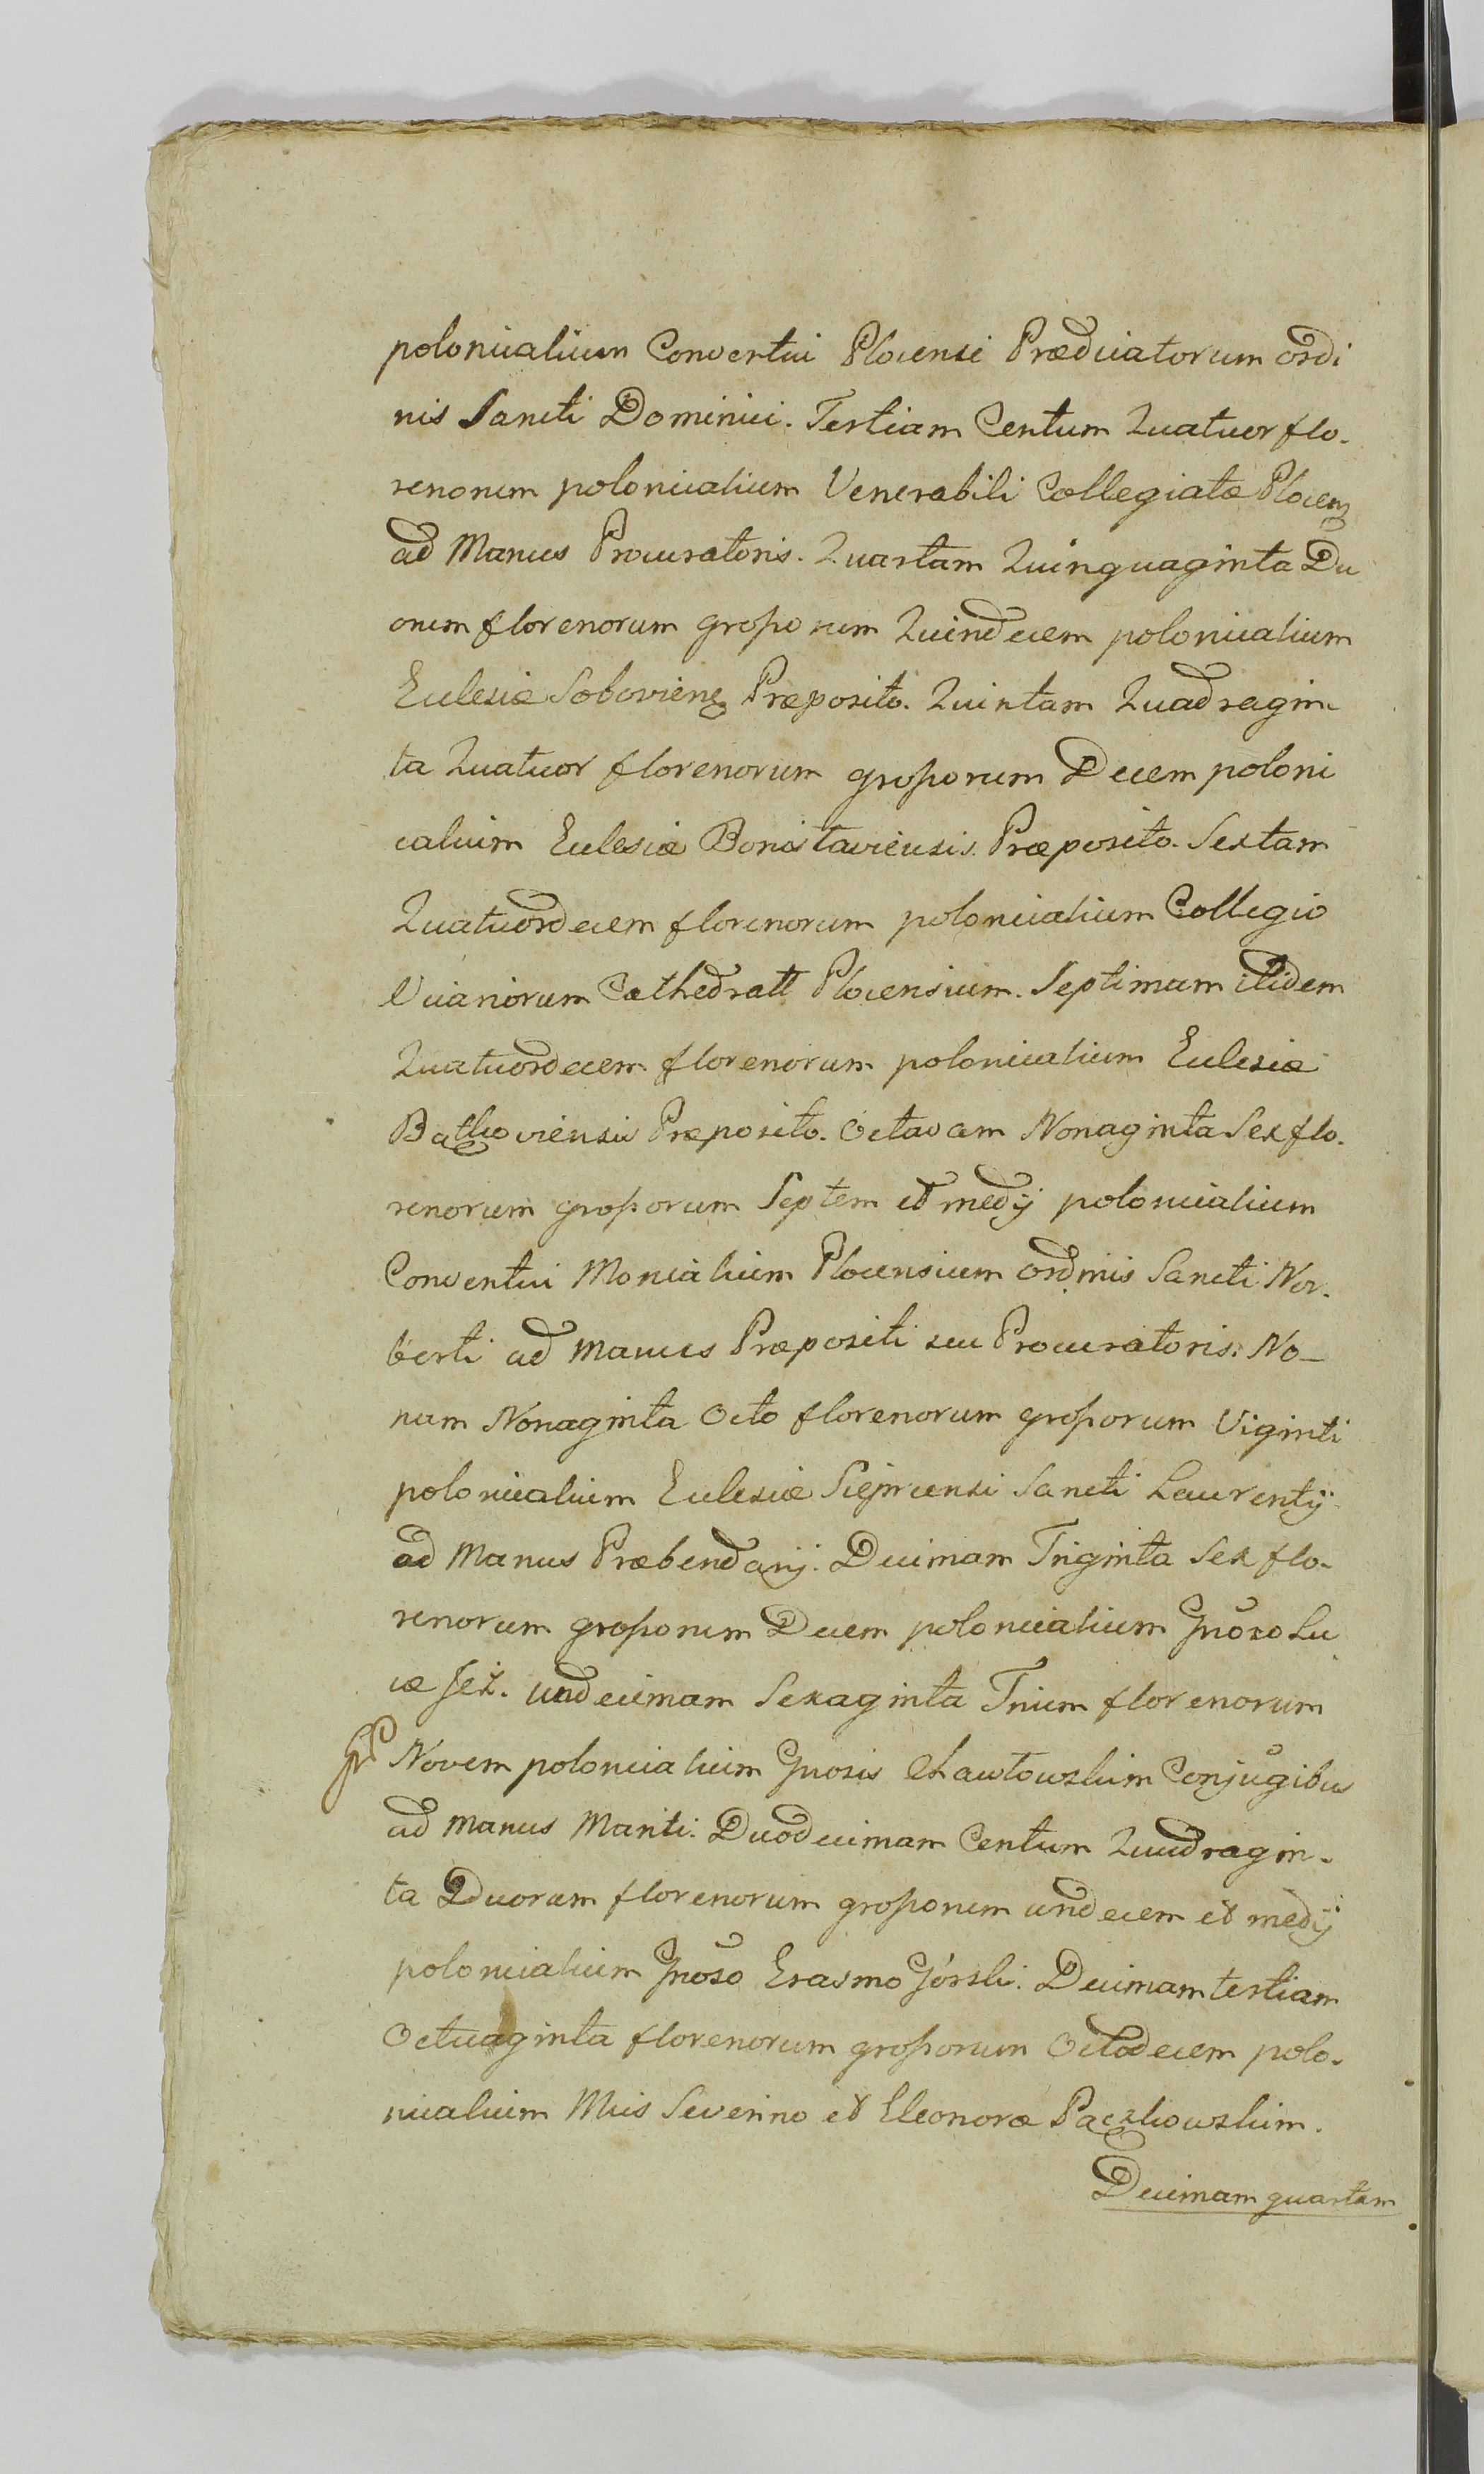 polonicalium Conventui Plocensi Prædicatorum ordi
nis Sancti Dominici. Tertiam Centum Quatuor flo-
renorum polonicalium Venerabili Collegiatæ Plocen
ad Manus Procuratoris. Quartam Quinquaginta Du
orum florenorum grossorum Quindecem polonicalium
Eclesiæ Præposito. Quintam Quadragin-
ta Quatuor florenorum grossorum Decem poloni
calium Eclesiæ Præposito. Sextam
Quatuordecem florenorum polonicalium Collegio
Vicariorum Cathedrall Plocensium. Septimam itidem
Quatuordecem florenorum polonicalium Eclesiæ
Præposito. Octavam Nonaginta Sex flo-
renorum grossorum Septem et medij polonicalium
Conventui Monialium Plocensium ordinis Sancti Nor-
berti ad Manus Præpositi seu Procuratoris. No-
nam Nonaginta Octo florenorum grossorum Viginti
polonicalium Eclesiæ Sieprcensi Sancti Laurentij
ad Manus Præbendarij. Decimam Triginta Sex flo-
renorum grossorum Decem polonicalium Gnoso Lu
cæ Jeż. undecimam Sexaginta Trium florenorum
gr Novem polonicalium Gnosis Conjugibus
ad Manus Mariti. Duodecimam Centum Quadragin-
ta Duorum florenorum grossorum undecem et medij
polonicalium Gnoso Erasmo Górski. Decimam tertiam
Octuaginta florenorum grossorum Octodecem polo-
nicalium Mcis Severino et Eleonoræ Pączkowskim.
Decimam quartam